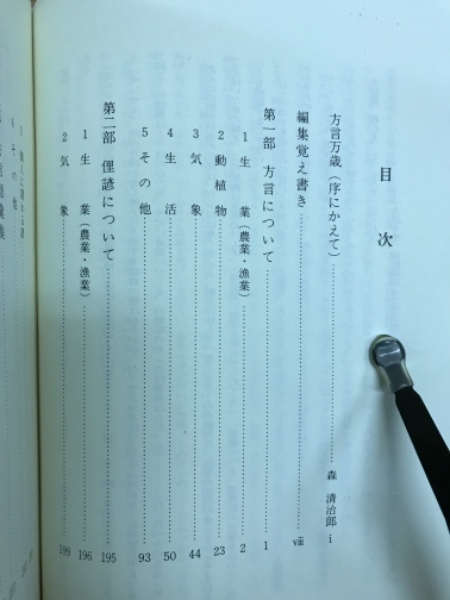 目次
方言万歳(序にかえて)……森 清治郎 i
編集覚え書き……viii
第一部 方言について……1
1 生業(農業・漁業)……2
2 動植物……23
3 気象……44
4 生活……50
5 その他……93
第二部 俚諺について……195
1 生業(農業・漁業)……196
2 気象……199
4 その他